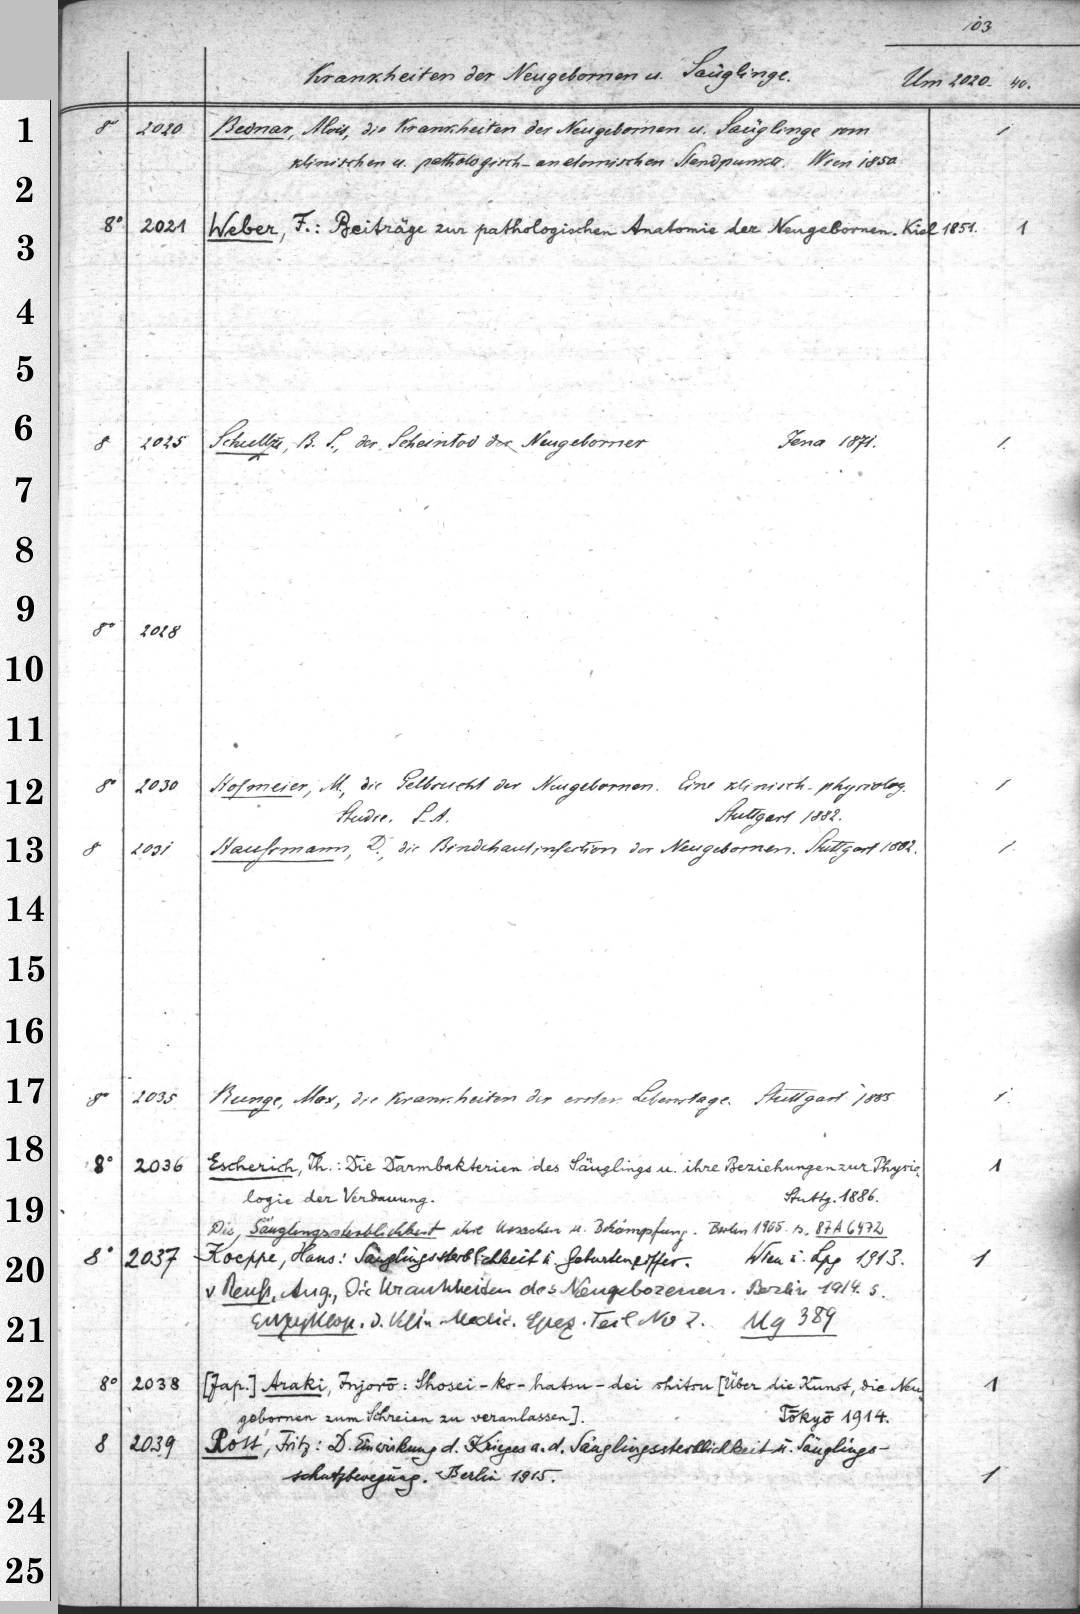 103
Krankheiten der Neugebornen u. Säuglinge. Um 2020. 40.
1
8° 2020 Bednar, Alois, die Krankheiten der Neugebornen u. Säuglinge vom 1
klinischen u. pathologisch-anatomischen Standpunkte. Wien 1850
2
8° 2021 Weber, F.: Beiträge zur pathologischen Anatomie der Neugebornen. Kiel 1851. 1
3
4
5
6
8 2025 Schultze, B. S., der Scheintod der Neugeborner Jena 1871. 1.
7
8
9
8° 2028
10
11
12
8° 2030 Hofmeier, M., die Gelbsucht der Neugebornen. Eine klinisch-physiolog. 1
Studie. S.A. Stuttgart 1882.
13
8 2031 Haussmann, D., die Bindehautinfection der Neugebornen. Stuttgart 1882. 1
14
15
16
17
8° 2035 Runge, Max, die Krankheiten der ersten Lebenstage. Stuttgart 1885 1.
18
8° 2036 Escherich, Th.: Die Darmbakterien des Säuglings u. ihre Beziehungen zur Physio- 1
logie der Verdauung. Stuttg. 1886.
19
Die Säuglingssterblichkeit ihre Ursachen u. Bekämpfung. Berlin 1905. s. 87A6472
20
8° 2037 Koeppe, Hans: Säuglingssterblichkeit u. Geburtenziffer. Wien u. Lpg 1913. 1
v Reuß, Aug., Die Krankheiten des Neugeborenen. Berlin 1914. s.
21
Enzyklop. d. Klin. Mediz. Spez. Teil No 2. Ug 389
22
8° 2038 [Jap.] Araki, Injorō: Shosei-ko-hatsu-dei shitsu [Über die Kunst, die Neu 1
gebornen zum Schreien zu veranlassen]. Tōkyō 1914.
23
8 2039 Rott, Fritz: D. Einwirkung d. Krieges a. d. Säuglingssterblichkeit u. Säuglings-
schutzbewegung. Berlin 1915. 1
24
25